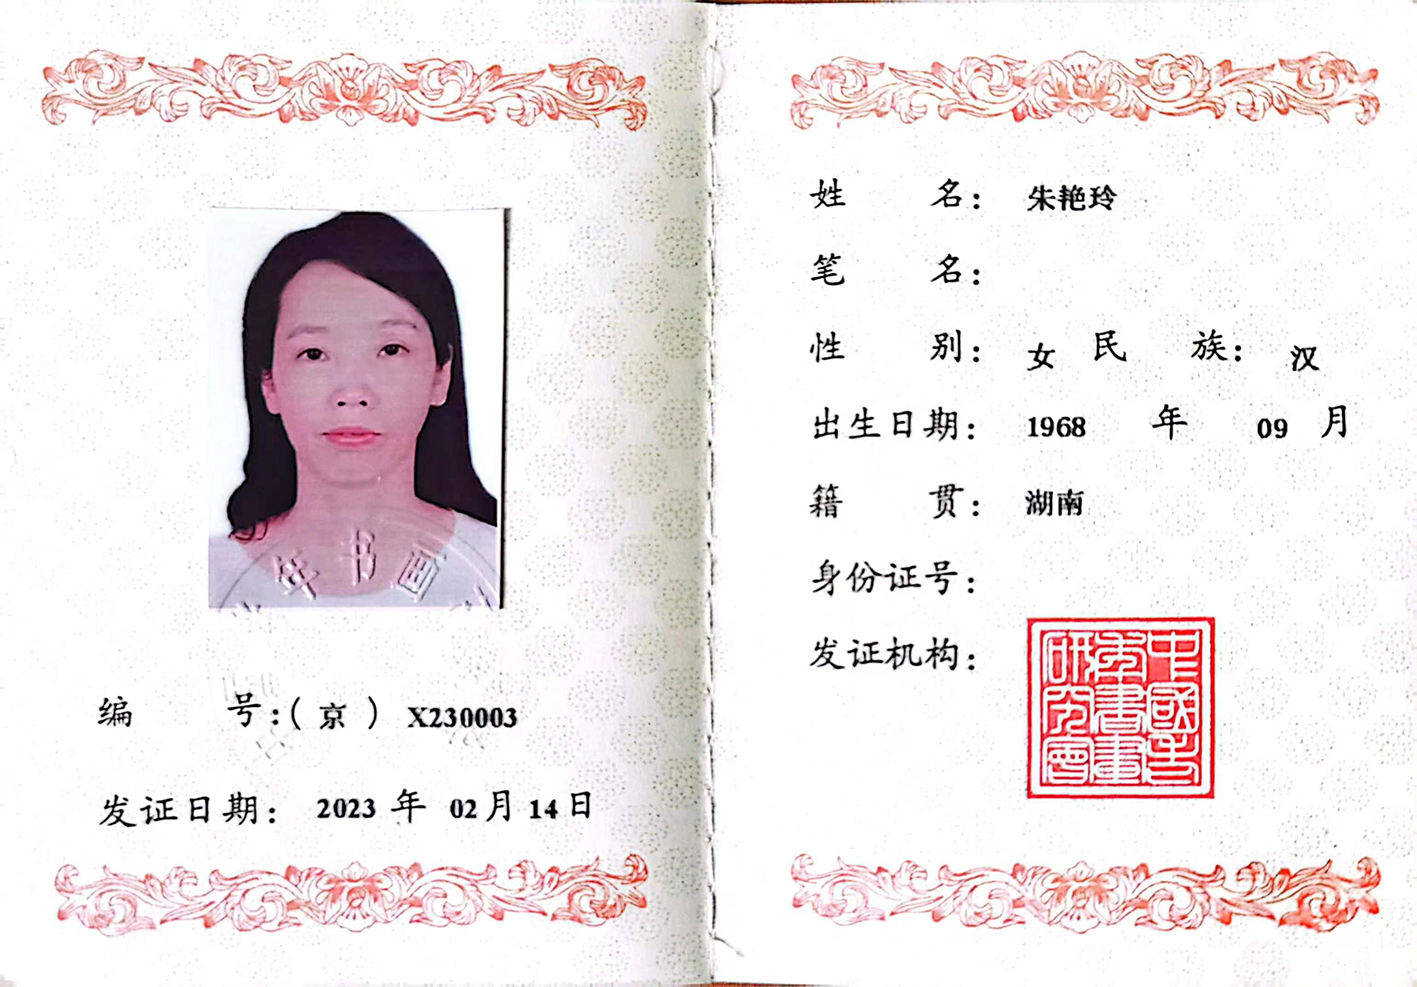 年书画
编 号:(京) X230003
发证日期: 2023 年 02 月 14 日
姓 名: 朱艳玲
笔 名:
性 别: 女 民 族: 汉
出生日期: 1968 年 09 月
籍 贯: 湖南
身份证号:
发证机构:
中國老
年書畫
研究會